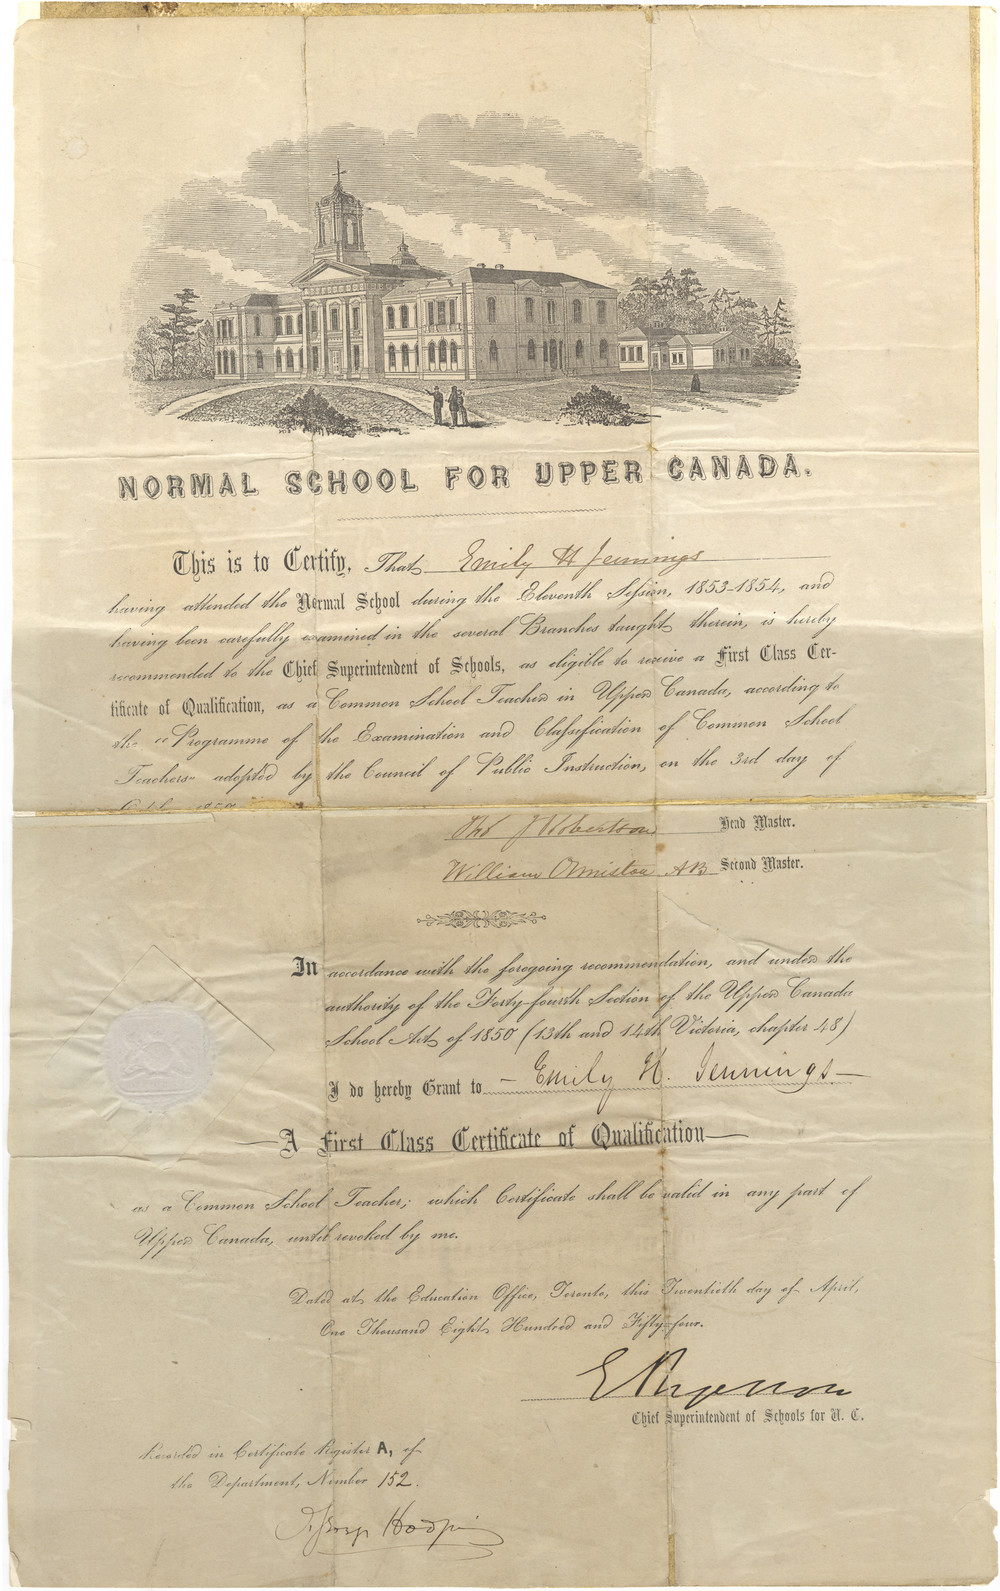 NORMAL SCHOOL FOR UPPER CANADA.
This is to Certify, That Emily H Jennings
having attended the Normal School during the Eleventh Session, 1853-1854, and
having been carefully examined in the several Branches taught therein, is hereby
recommended to the Chief Superintendent of Schools, as eligible to receive a First Class Cer-
tificate of Qualification, as a Common School Teacher in Upper Canada, according to
the "Programme of the Examination and Classification of Common School
Teachers" adopted by the Council of Public Instruction, on the 3rd day of
Thos J Robertson Head Master.
William Ormiston AB Second Master.
In accordance with the foregoing recommendation, and under the
authority of the Forty-fourth Section of the Upper Canada
School Act of 1850 (13th and 14th Victoria, chapter 48)
I do hereby Grant to - Emily H. Jennings -
A First Class Certificate of Qualification
as a Common School Teacher; which Certificate shall be valid in any part of
Upper Canada, until revoked by me.
Dated at the Education Office, Toronto, this Twentieth day of April,
One Thousand Eight Hundred and Fifty-four.
E Ryerson
Chief Superintendent of Schools for U. C.
Recorded in Certificate Register A, of
the Department, Number 152.
J. George Hodgins